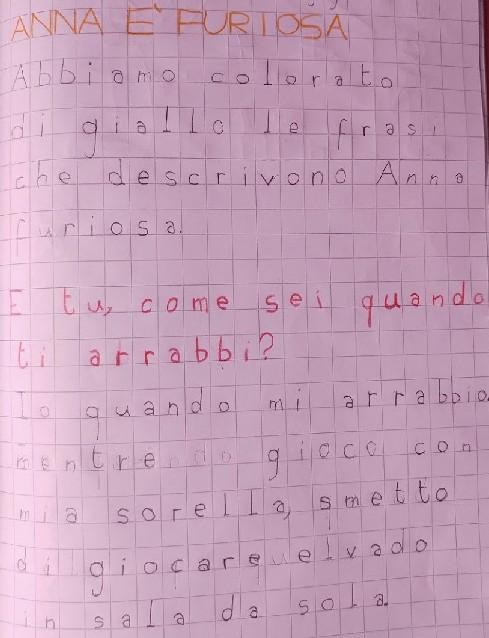 ANNA E' FURIOSA
Abbiamo colorato
di giallo le frasi
che descrivono Anna
furiosa.
E tu, come sei quando
ti arrabbi?
Io quando mi arrabbio,
mentre gioco con
mia sorella, smetto
di giocare e vado
in sala da sola.